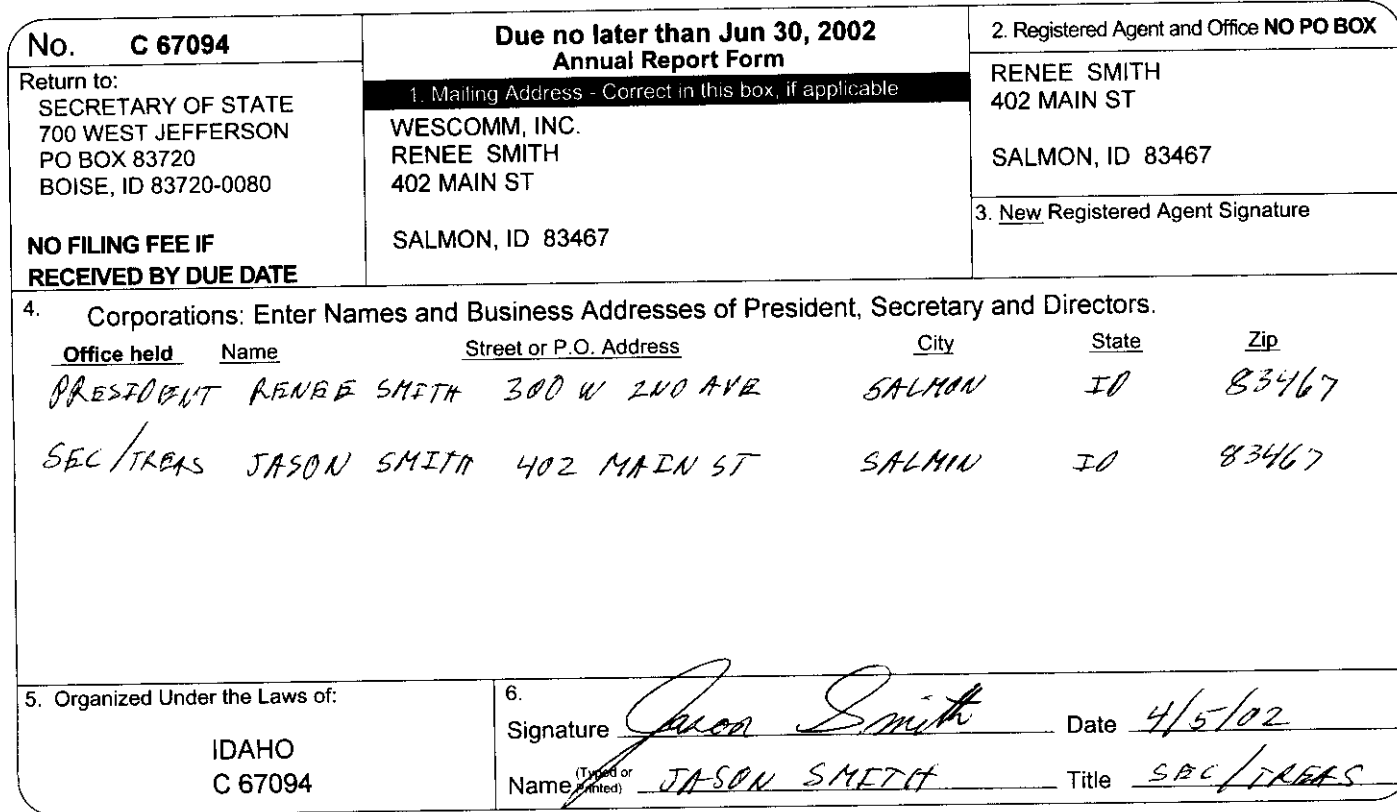 No. C 67094
Return to:
SECRETARY OF STATE
700 WEST JEFFERSON
PO BOX 83720
BOISE, ID 83720-0080
NO FILING FEE IF
RECEIVED BY DUE DATE
Due no later than Jun 30, 2002
Annual Report Form
1. Mailing Address - Correct in this box, if applicable
WESCOMM, INC.
RENEE SMITH
402 MAIN ST
SALMON, ID 83467
2. Registered Agent and Office NO PO BOX
RENEE SMITH
402 MAIN ST
SALMON, ID 83467
3. New Registered Agent Signature
4. Corporations: Enter Names and Business Addresses of President, Secretary and Directors.
Office held Name Street or P.O. Address City State Zip
PRESIDENT RENEE SMITH 300 W 2ND AVE SALMON ID 83467
SEC/TREAS JASON SMITH 402 MAIN ST SALMON ID 83467
5. Organized Under the Laws of:
IDAHO
C 67094
6.
Signature Jason Smith Date 4/5/02
Name (Typed or Printed) JASON SMITH Title SEC/TREAS